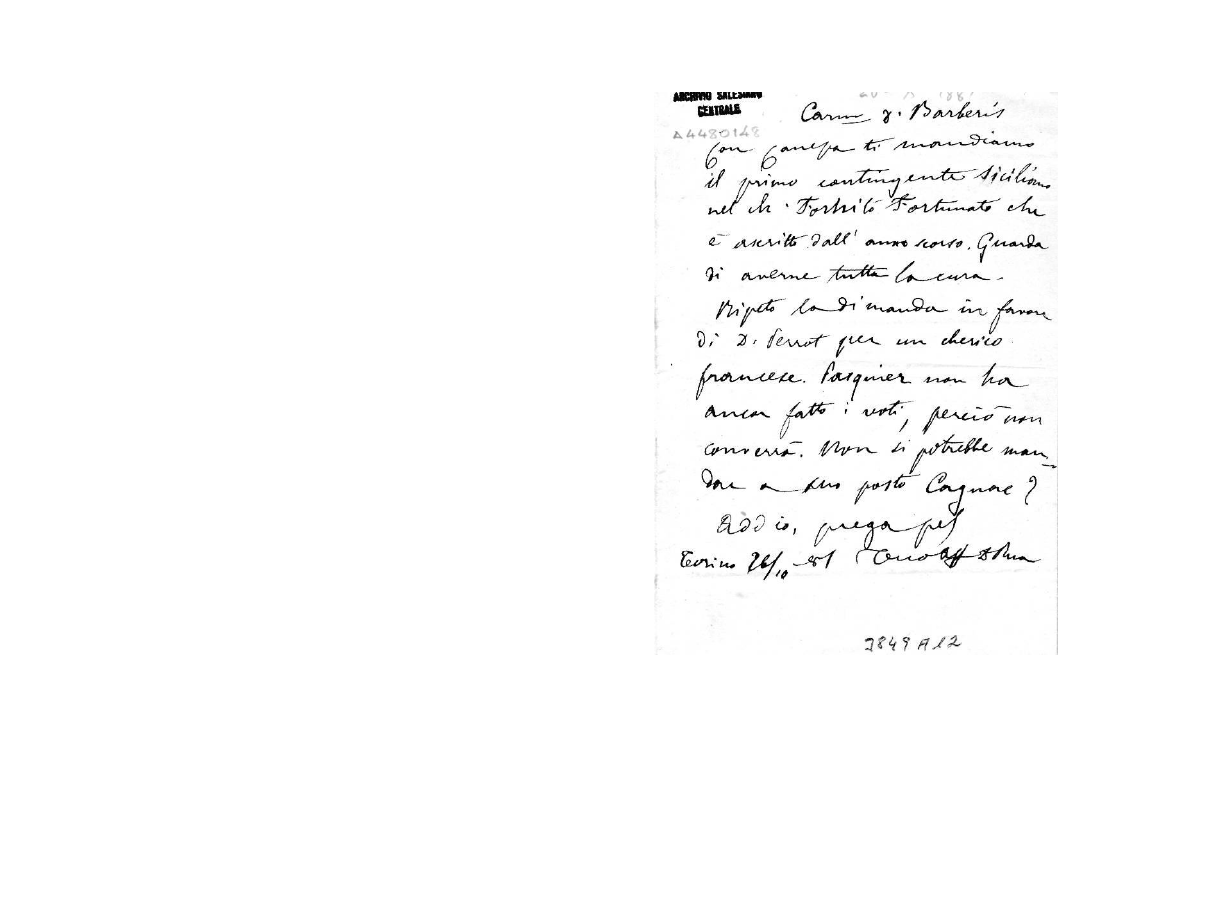 ARCHIVIO SALESIANO
CENTRALE
A4480148
Carmo D. Barberis
Con Canepa ti mandiamo
il primo contingente siciliano
nel ch. Fortunato che
è ascritto dall' anno scorso. Guarda
di averne tutta la cura.
Ripeto la dimanda in favore
di D. Perrot per un cherico
francese. Pasquier non ha
ancor fatto i voti, perciò non
converrà. Non si potrebbe man-
dare a suo posto Cagnac?
Addio, prega pel
Torino 26/10 -81 Tuo aff D Rua
3849 A12